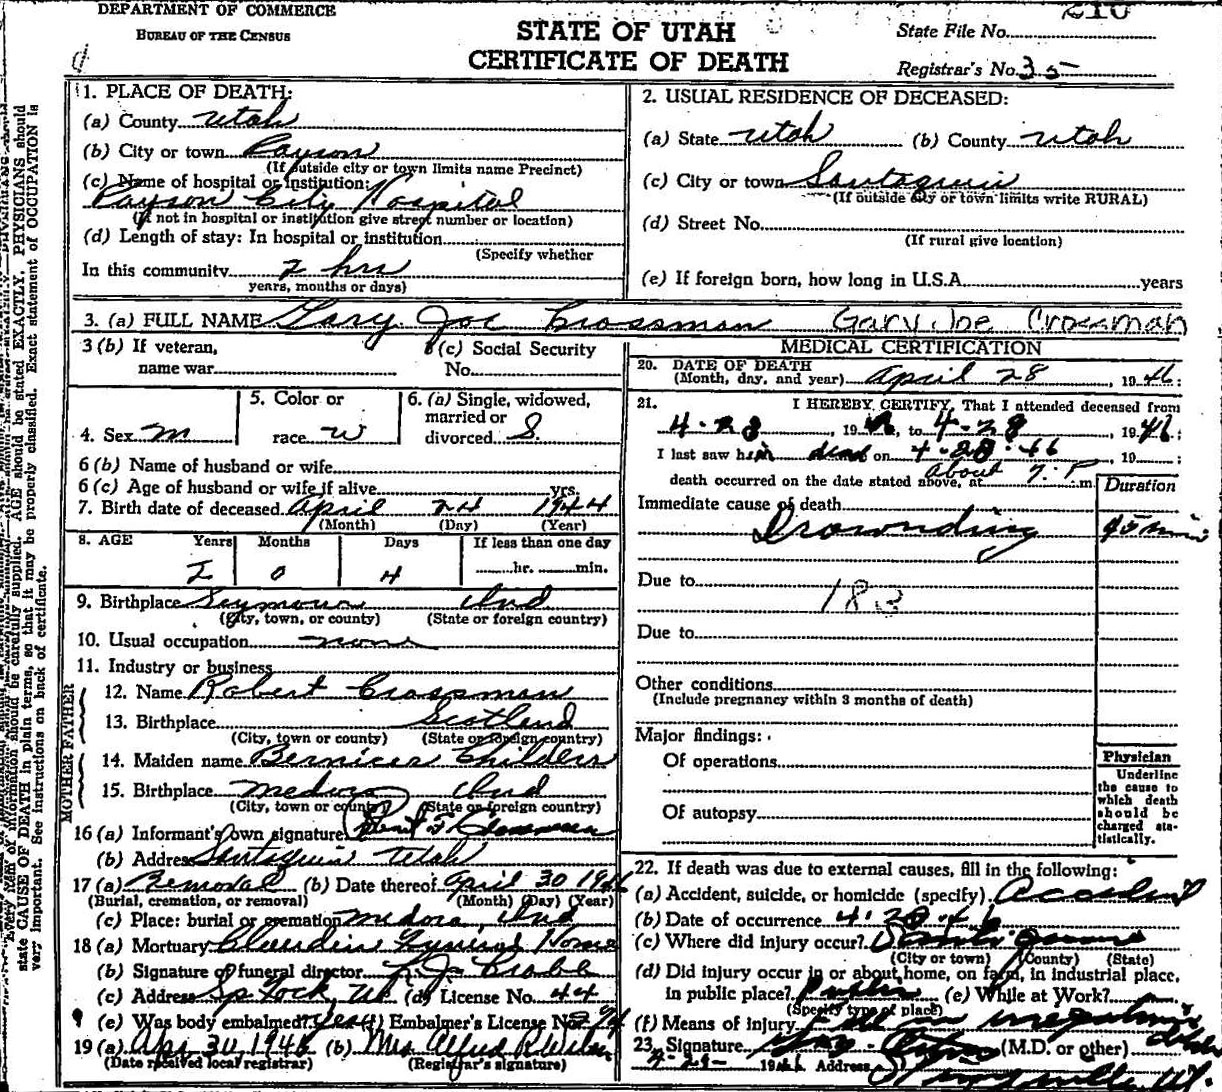 DEPARTMENT OF COMMERCE
BUREAU OF THE CENSUS
STATE OF UTAH
CERTIFICATE OF DEATH
210
State File No.
Registrar's No. 35
1. PLACE OF DEATH:
(a) County Utah
(b) City or town Payson
(If outside city or town limits name Precinct)
(c) Name of hospital or institution:
Payson City Hospital
(If not in hospital or institution give street number or location)
(d) Length of stay: In hospital or institution
(Specify whether
In this community 2 hrs
years, months or days)
2. USUAL RESIDENCE OF DECEASED:
(a) State Utah (b) County Utah
(c) City or town Santaquin
(If outside city or town limits write RURAL)
(d) Street No.
(If rural give location)
(e) If foreign born, how long in U.S.A. years
3. (a) FULL NAME Gary Joe Crossman Gary Joe Crossman
3 (b) If veteran,
name war
3 (c) Social Security
No.
4. Sex M
5. Color or
race W
6. (a) Single, widowed,
married or
divorced S.
6 (b) Name of husband or wife
6 (c) Age of husband or wife if alive yrs.
7. Birth date of deceased April 24 1944
(Month) (Day) (Year)
8. AGE Years Months Days If less than one day
2 0 4 hr. min.
9. Birthplace Seymour Ind
(City, town, or county) (State or foreign country)
10. Usual occupation none
11. Industry or business
FATHER
12. Name Robert Crossman
13. Birthplace Scotland
(City, town or county) (State or foreign country)
MOTHER
14. Maiden name Childers
15. Birthplace Medora Ind
(City, town or county) (State or foreign country)
16 (a) Informant's own signature
(b) Address Santaquin Utah
17 (a) Removal (b) Date thereof April 30 1946
(Burial, cremation, or removal) (Month) (Day) (Year)
(c) Place: burial or cremation Medora, Ind
18 (a) Mortuary Home
(b) Signature of funeral director
(c) Address Ut. (d) License No. 44
(e) Was body embalmed? Yes (f) Embalmer's License No.
19 (a) Apr 30 1946 (b) Mrs Alfred R.
(Date received local registrar) (Registrar's signature)
MEDICAL CERTIFICATION
20. DATE OF DEATH
(Month, day, and year) April 28, 1946:
21. I HEREBY CERTIFY, That I attended deceased from
4-28, 19, to 4-28, 1946;
I last saw him dead on 4-28-46, 19
death occurred on the date stated above, at about 7. P. m.
Duration
Immediate cause of death
Drownding 45 min
Due to
183
Due to
Other conditions
(Include pregnancy within 3 months of death)
Major findings:
Of operations
Of autopsy
Physician
Underline
the cause to
which death
should be
charged sta-
tistically.
22. If death was due to external causes, fill in the following:
(a) Accident, suicide, or homicide (specify) Accident
(b) Date of occurrence 4-28-46
(c) Where did injury occur?
(City or town) (County) (State)
(d) Did injury occur in or about home, on farm, in industrial place,
in public place? Public (e) While at Work?
(Specify type of place)
(f) Means of injury Fell in irrigation ditch
23. Signature (M.D. or other)
4-29- 1946 Address
state CAUSE OF DEATH in plain terms, so that it may be properly classified. Exact statement of OCCUPATION is
very important. See instructions on back of certificate.